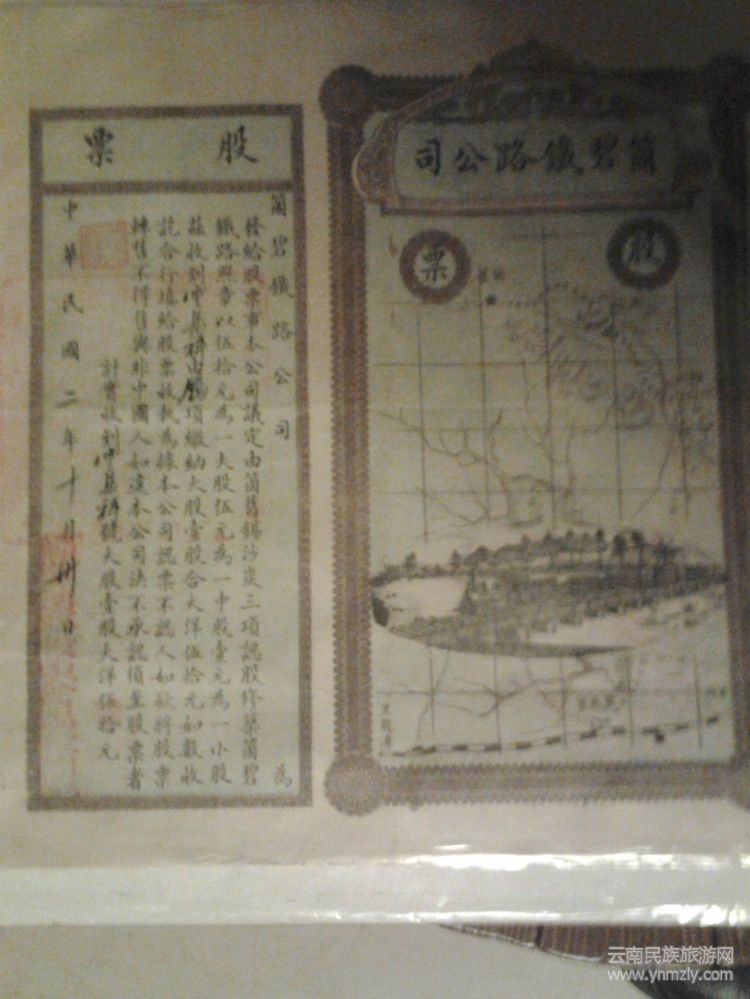 箇碧鐵路公司
股票
股票
箇碧鐵路公司 為
發給股票事本公司議定由箇舊錫沙炭三項認股修築箇碧
鐵路照章以伍拾元為一大股伍元為一中股壹元為一小股
茲收到由錫項繳納大股壹股合大洋伍拾元如數收
訖合行填給股票收執為據本公司認票不認人如欲將股票
轉售不得售與非中國人如違本公司決不承認須至股票者
計實收到號大股壹股大洋伍拾元
中華民國二年十月卅日
云南民族旅游网
www.ynmzly.com